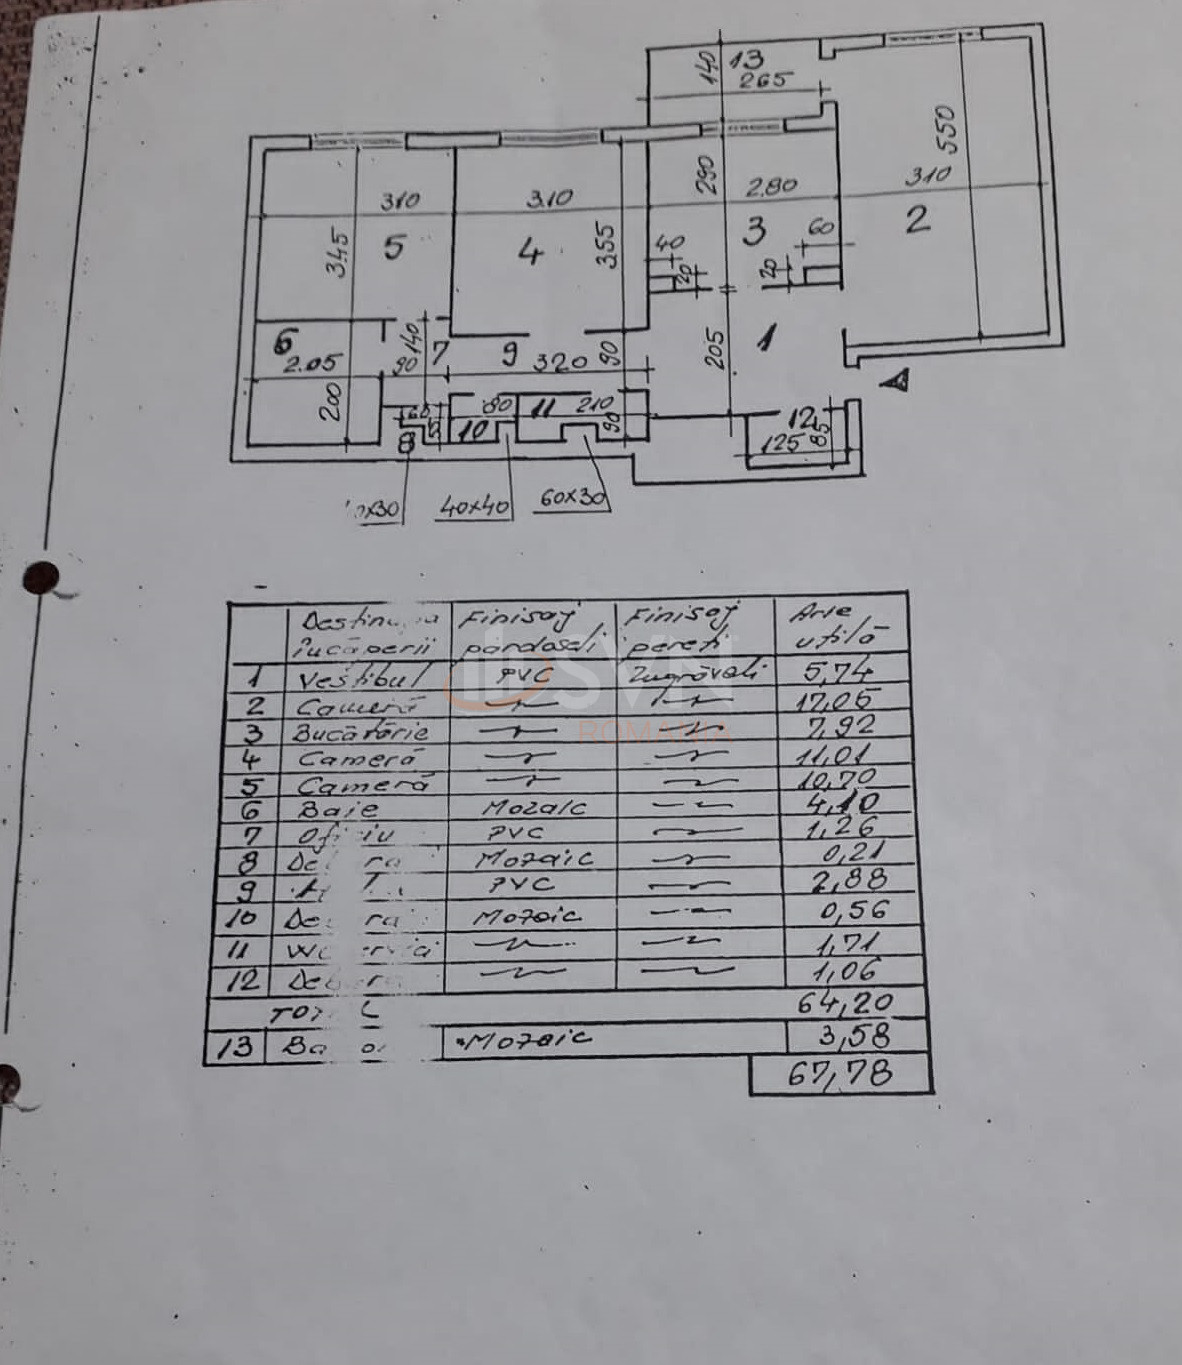 140
13
265
550
290
2.80
310
310
3.10
345
5
4
355
3
60
2
40
20
20
6
2.05
140
90
7
9
320
90
205
1
200
60
8
80
10
11
210
90
12
125
85
40x40
60x30
Finisaj Finisaj Arie
încăperii pardoseli pereți utilă
1 Vestibul PVC Zugrăveli 5,74
2 Cameră 17,05
3 Bucătărie 7,92
4 Cameră 11,01
5 Cameră 10,70
6 Baie Mozaic 4,10
7 PVC 1,26
8 Mozaic 0,21
9 PVC 2,88
10 Mozaic 0,56
11 1,71
12 1,06
64,20
13 Mozaic 3,58
67,78
SVN
ROMANIA